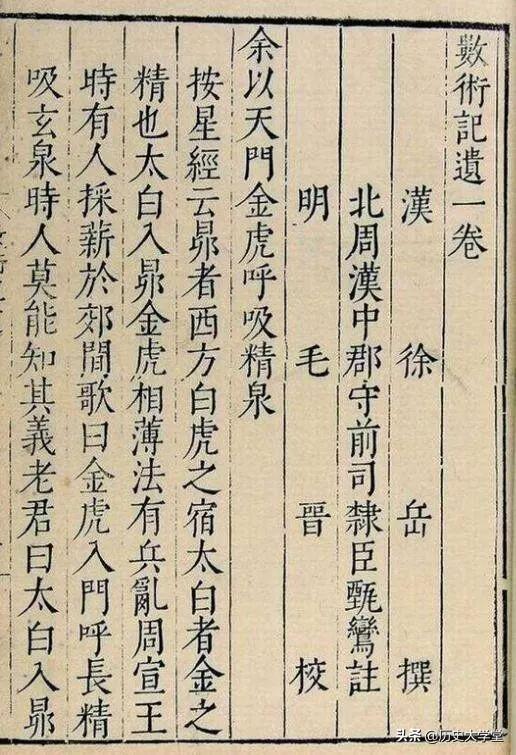 數術記遺一卷
漢 徐 岳 撰
北周漢中郡守前司隸臣甄鸞註
明 毛 晉 校
余以天門金虎呼吸精泉
按星經云昴者西方白虎之宿太白者金之
精也太白入昴金虎相薄法有兵亂周宣王
時有人採薪於郊間歌曰金虎入門呼長精
吸玄泉時人莫能知其義老君曰太白入昴
头条@历史大学堂